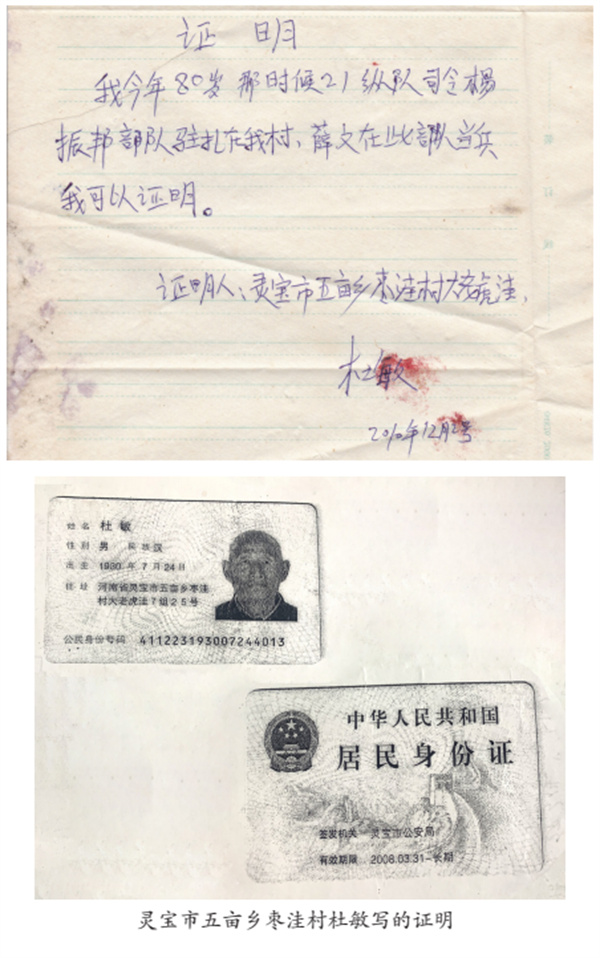 证 明
我今年80岁 那时候21纵队司令杨
振邦部队驻扎在我村、薛文在此部队当兵
我可以证明。
证明人:灵宝市五亩乡枣洼村大老虎洼,
杜敏
2010年12月2号
姓名 杜敏
性别 男 民族 汉
出生 1930年7月24日
住址 河南省灵宝市五亩乡枣洼
村大老虎洼7组25号
公民身份号码 411223193007244013
中华人民共和国
居民身份证
签发机关 灵宝市公安局
有效期限 2008.03.31-长期
灵宝市五亩乡枣洼村杜敏写的证明